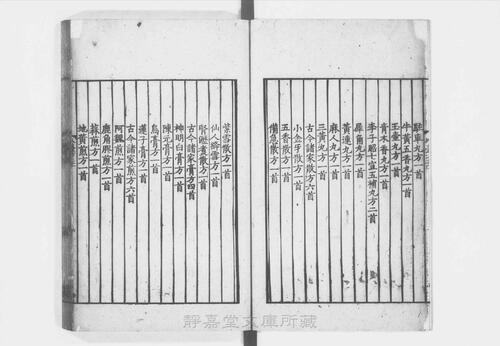 駐車丸方一首
牛黃五香丸方一首
玉壺丸方一首
青木香丸方一首
李子昭七宣五補丸方二首
犀角丸方一首
黃連丸方一首
麻人丸方一首
三黃丸方一首
古今諸家散方六首
小金牙散方一首
五香散方一首
備急散方一首
紫雪散方一首
仙人縮雪方一首
腎瀝煮散方一首
古今諸家膏方四首
神明白膏方一首
陳元膏方一首
烏膏方一首
蓮子膏方一首
古今諸家煎方六首
阿魏煎方一首
鹿角膠煎方一首
蘇煎方一首
地黃煎方一首
靜嘉堂文庫所藏